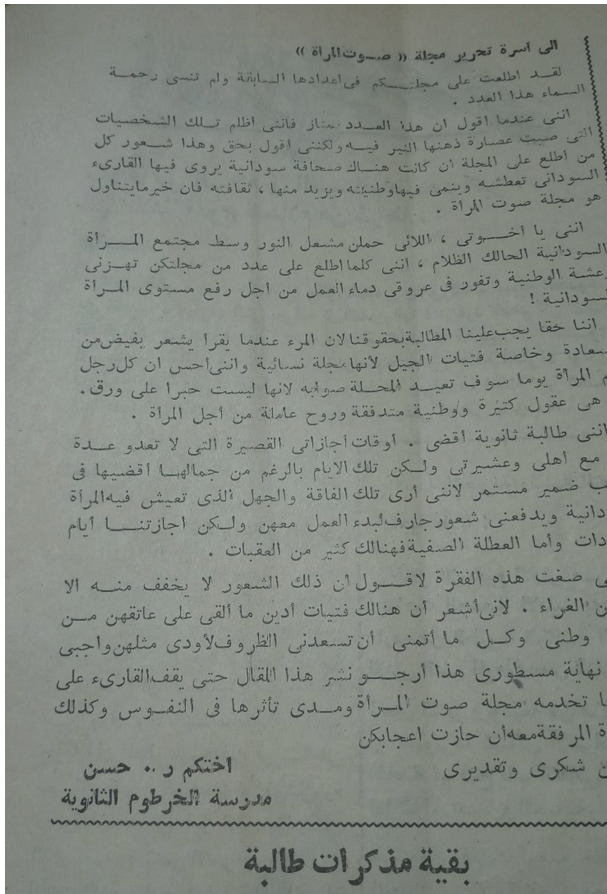 الى اسرة تحرير مجلة « صـوت المرأة »
لقد اطلعت على مجلتـكم فى اعدادها السابقة ولم تنسى رحمة
السماء هذا العدد .
اننى عندما اقول ان هذا العـدد ممتاز فاننى اظلم تـلك الشخصيات
التى صبت عصارة ذهنها النير فيـه ولكننى اقول بحق وهذا شعور كل
من اطلع على المجلة ان كانت هناك صحافة سودانية يروى فيها القارىء
السودانى تعطشه وينمى فيها وطنيته ويزيد منها ، ثقافته فان خير مايتناول
هو مجلة صوت المرأة .
اننى يا اخـوتى ، اللائى حملن مشعل النور وسط مجتمع المـرأة
السودانية الحالك الظلام ، اننى كلما اطلع على عدد من مجلتكن تهـزنى
رعشة الوطنية وتفور فى عروقى دماء العمل من اجل رفع مستوى المـرأة
سودانية !
اننا حقا يجب علينا المطالبة بحقوقنا لان المرء عندما يقرا يشعر بفيض من
سعادة وخاصة فتيات الجيل لأنها مجلة نسائية واننى احس ان كل رجل
المرأة يوما سوف تعيـد المجـلة صوابه لانها ليست حبرا على ورق.
هى عقول كثيرة ووطنية متدفقة وروح عاملة من أجل المرأة .
اننى طالبة ثانوية اقضى . أوقات أجازاتى القصيرة التى لا تعدو عـدة
مع أهلى وعشيرتى ولـكن تلك الايام بالرغم من جمالهـا أقضيها فى
ضمير مستمر لاننى أرى تلك الفاقة والجهل الذى تعيش فيه المرأة
دانية ويدفعنى شعور جارف لبدء العمل معهن ولـكن اجازتنـا أيام
دات وأما العطلة الصفية فهنالك كثير من العقبات .
ى صغت هذه الفقرة لاقـول ان ذلك الشعور لا يخفف منـه الا
ن الغراء . لانى أشعر أن هنالك فتيات أدين ما ألقى على عاتقهن مـن
وطنى وكـل ما أتمنى أن تسعدنى الظروف لأودى مثلهن واجبى
نهاية مسطورى هذا أرجـو نشر هذا المقال حتى يقف القارىء على
ا تخدمه مجلة صوت المـرأة ومـدى تأثرها فى النفـوس وكذلك
ة المرفقة معه أن حازت اعجابكن
ن شكرى وتقديرى
اختكم ر .. حسن
مدرسة الخرطوم الثانوية
بقية مذكرات طالبة